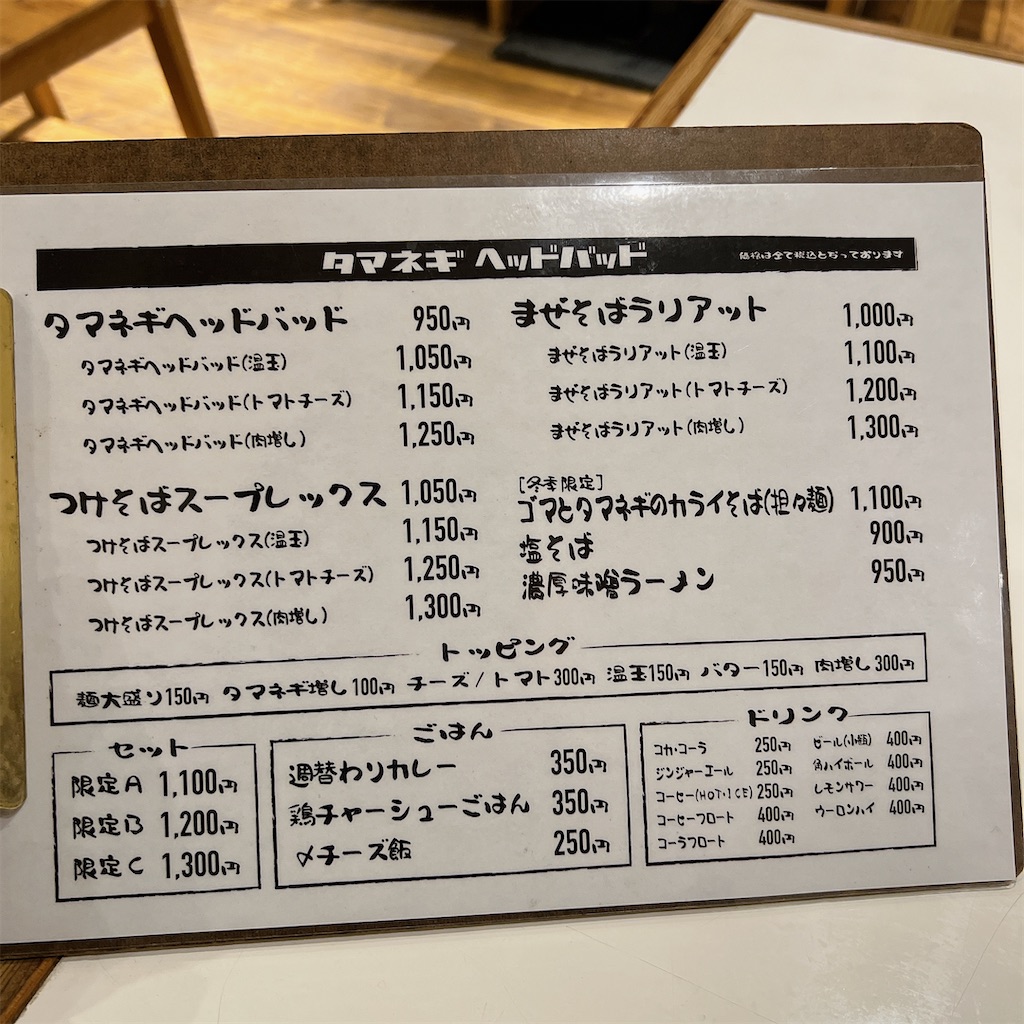 タマネギ ヘッドバッド 価格は全て税込となっております
タマネギヘッドバッド 950円
タマネギヘッドバッド(温玉) 1,050円
タマネギヘッドバッド(トマトチーズ) 1,150円
タマネギヘッドバッド(肉増し) 1,250円
まぜそばラリアット 1,000円
まぜそばラリアット(温玉) 1,100円
まぜそばラリアット(トマトチーズ) 1,200円
まぜそばラリアット(肉増し) 1,300円
つけそばスープレックス 1,050円
つけそばスープレックス(温玉) 1,150円
つけそばスープレックス(トマトチーズ) 1,250円
つけそばスープレックス(肉増し) 1,300円
[冬季限定]
ゴマとタマネギのカライそば(担々麺) 1,100円
塩そば 900円
濃厚味噌ラーメン 950円
トッピング
麺大盛り150円 タマネギ増し100円 チーズ/トマト300円 温玉150円 バター150円 肉増し300円
セット
限定A 1,100円
限定B 1,200円
限定C 1,300円
ごはん
週替わりカレー 350円
鶏チャーシューごはん 350円
〆チーズ飯 250円
ドリンク
コカ・コーラ 250円
ジンジャーエール 250円
コーヒー(HOT・ICE) 250円
コーヒーフロート 400円
コーラフロート 400円
ビール(小瓶) 400円
角ハイボール 400円
レモンサワー 400円
ウーロンハイ 400円